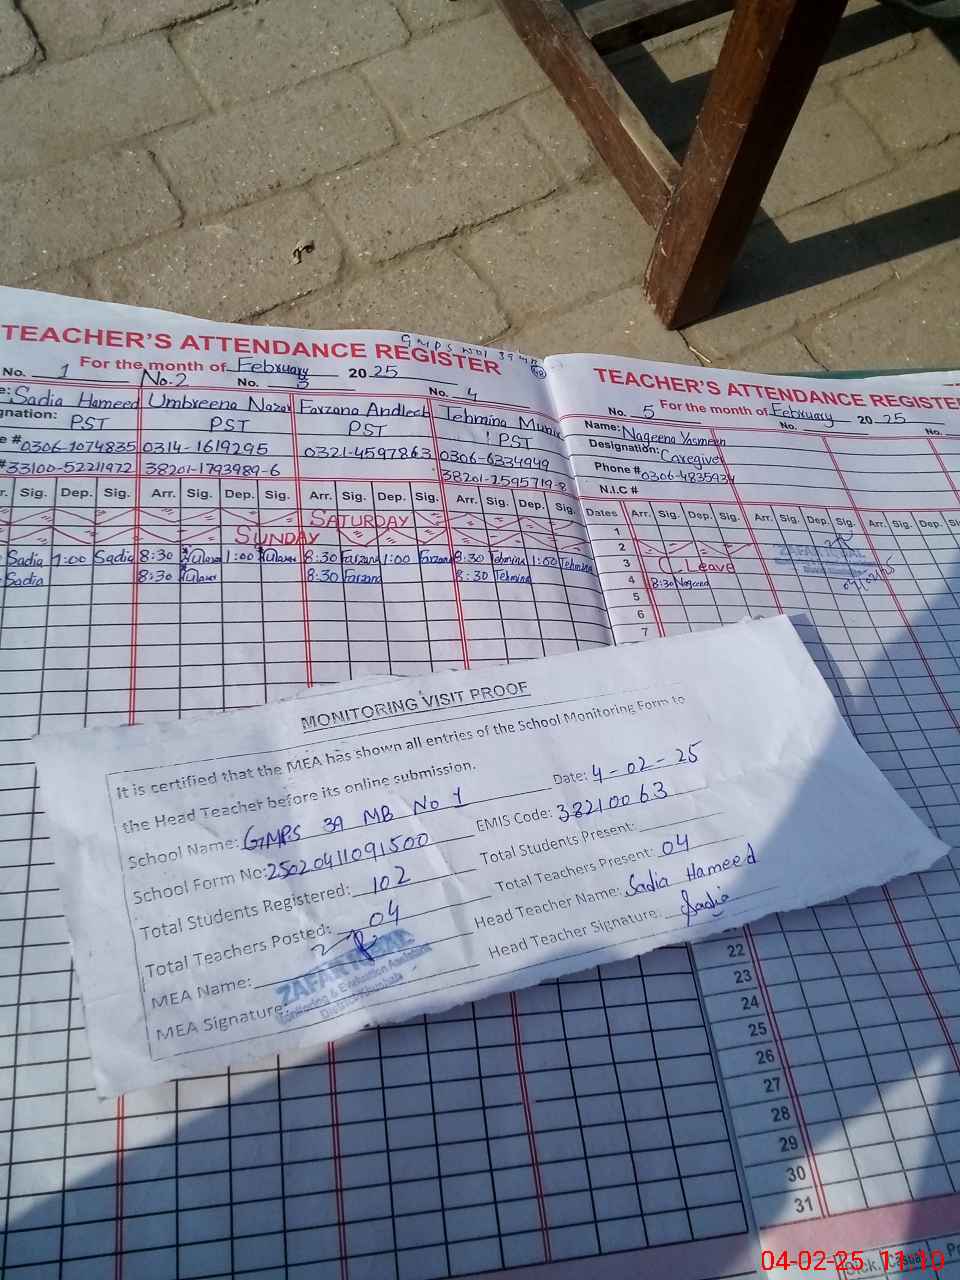 GMPS NO1 39MB
TEACHER'S ATTENDANCE REGISTER
For the month of February 2025
No. 1 No. 2 No. 3 No. 4
Sadia Hameed Umbreena Nazar Farzana Andleeb Tehmina Munir
gnation: PST PST PST PST
e #0306-1074835 0314-1619295 0321-4597863 0306-6334949
#33100-52211972 38201-1793989-6 38201-2595719-8
r. Sig. Dep. Sig. Arr. Sig. Dep. Sig. Arr. Sig. Dep. Sig. Arr. Sig. Dep. Sig.
SATURDAY
SUNDAY
Sadia 1:00 Sadia 8:30 1:00 8:30 Farzana 1:00 Farzana 8:30 Tehmina 1:00 Tehmina
Sadia 8:30 8:30 Farzana 8:30 Tehmina
TEACHER'S ATTENDANCE REGISTE
No. 5 For the month of February 2025
No. No.
Name: Nageena Yasmeen
Designation: Caregiver
Phone # 0306-4835934
N.I.C #
Dates Arr. Sig. Dep. Sig. Arr. Sig. Dep. Sig. Arr. Sig. Dep. Si
1
2
3 C. Leave
4 8:30 Nageena
5
6
7
ZAFAR IQBAL
MONITORING VISIT PROOF
It is certified that the MEA has shown all entries of the School Monitoring Form to
the Head Teacher before its online submission.
School Name: GMPS 39 MB No 1 Date: 4-02-25
School Form No: 25020411091500 EMIS Code: 38210063
Total Students Registered: 102 Total Students Present:
Total Teachers Posted: 04 Total Teachers Present: 04
MEA Name: Head Teacher Name: Sadia Hameed
MEA Signature: Head Teacher Signature: Sadia
ZAFAR IQBAL
Monitoring & Evaluation Assistant
District Khushab
22
23
24
25
26
27
28
29
30
31
Casual
04-02-25 11:10